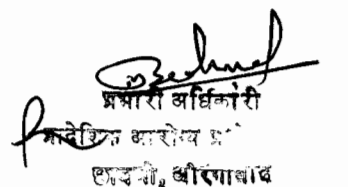 प्रभारी अधिकारी
प्रादेशिक आरोग्य
छावनी, औरंगाबाद